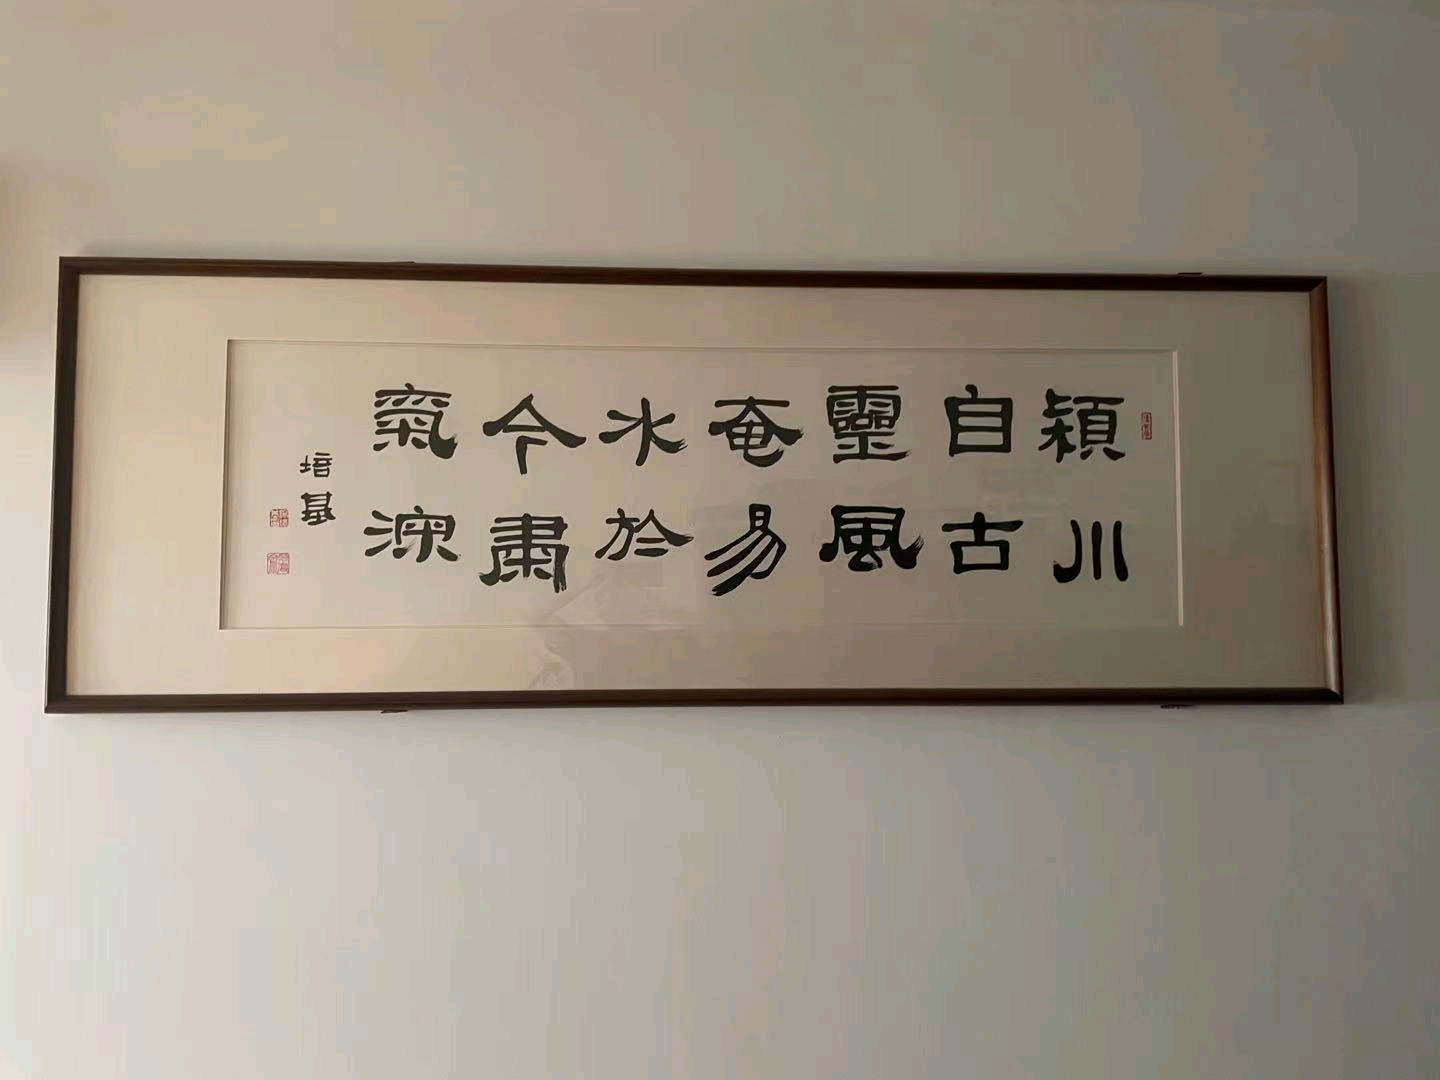 潁川
自古
靈風
奄易
水於
今肅
氣深
培基